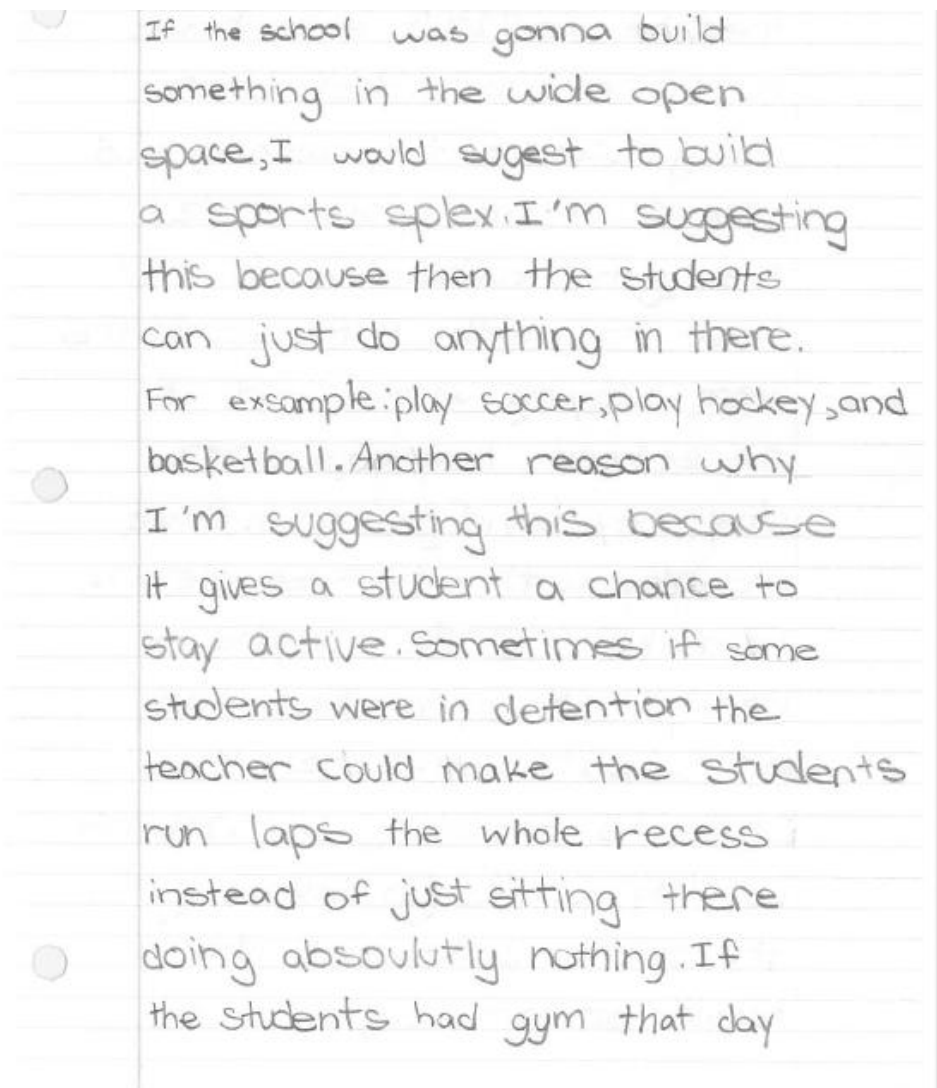 If the school was gonna build
something in the wide open
space, I would sugest to build
a sports splex. I'm suggesting
this because then the students
can just do anything in there.
For exsample: play soccer, play hockey, and
basketball. Another reason why
I'm suggesting this because
it gives a student a chance to
stay active. Sometimes if some
students were in detention the
teacher could make the students
run laps the whole recess
instead of just sitting there
doing absoulutly nothing. If
the students had gym that day